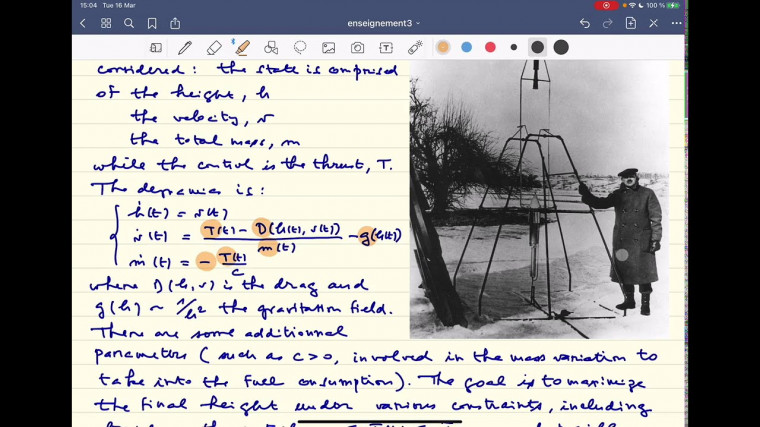 15:04 Tue 16 Mar
enseignement3
considered: the state is comprised
of the height, h
the velocity, v
the total mass, m
while the control is the thrust, T.
The dynamics is:
ḣ(t) = v(t)
v̇(t) = (T(t) - D(h(t), v(t))) / m(t) - g(h(t))
ṁ(t) = - T(t)/c
where D(h,v) is the drag and
g(h) ~ 1/h² the gravitation field.
There are some additionnal
parameters (such as c>0, involved in the mass variation to
take into the fuel consumption). The goal is to maximize
the final height under various constraints, including